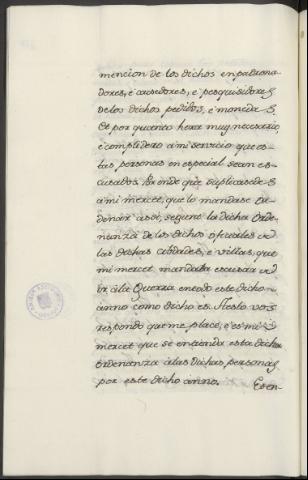 mencion de los dichos enpadrona-
dores, é cusedores, é pesquisidores
de los dichos pedidos, é moneda s.
Et por quanto hera muy necesario
é complidero á mi servicio que es-
tas personas en especial sean es-
cusados. Porende que suplicasede s
á mi mercet, que lo mandase or-
denár asoí, segunt la dicha orde-
nanza de los dichos oficiales é de
las dichas cibdades, é villas, que
mi mercet mandaba escusar de
ir á la Guerra en todo este dicho
anno como dicho es. Aesto vos
respondo que me place, é es mi
mercet que se entienda esta dicha
ordenanza á las dichas personas
por este dicho anno.
Eien-